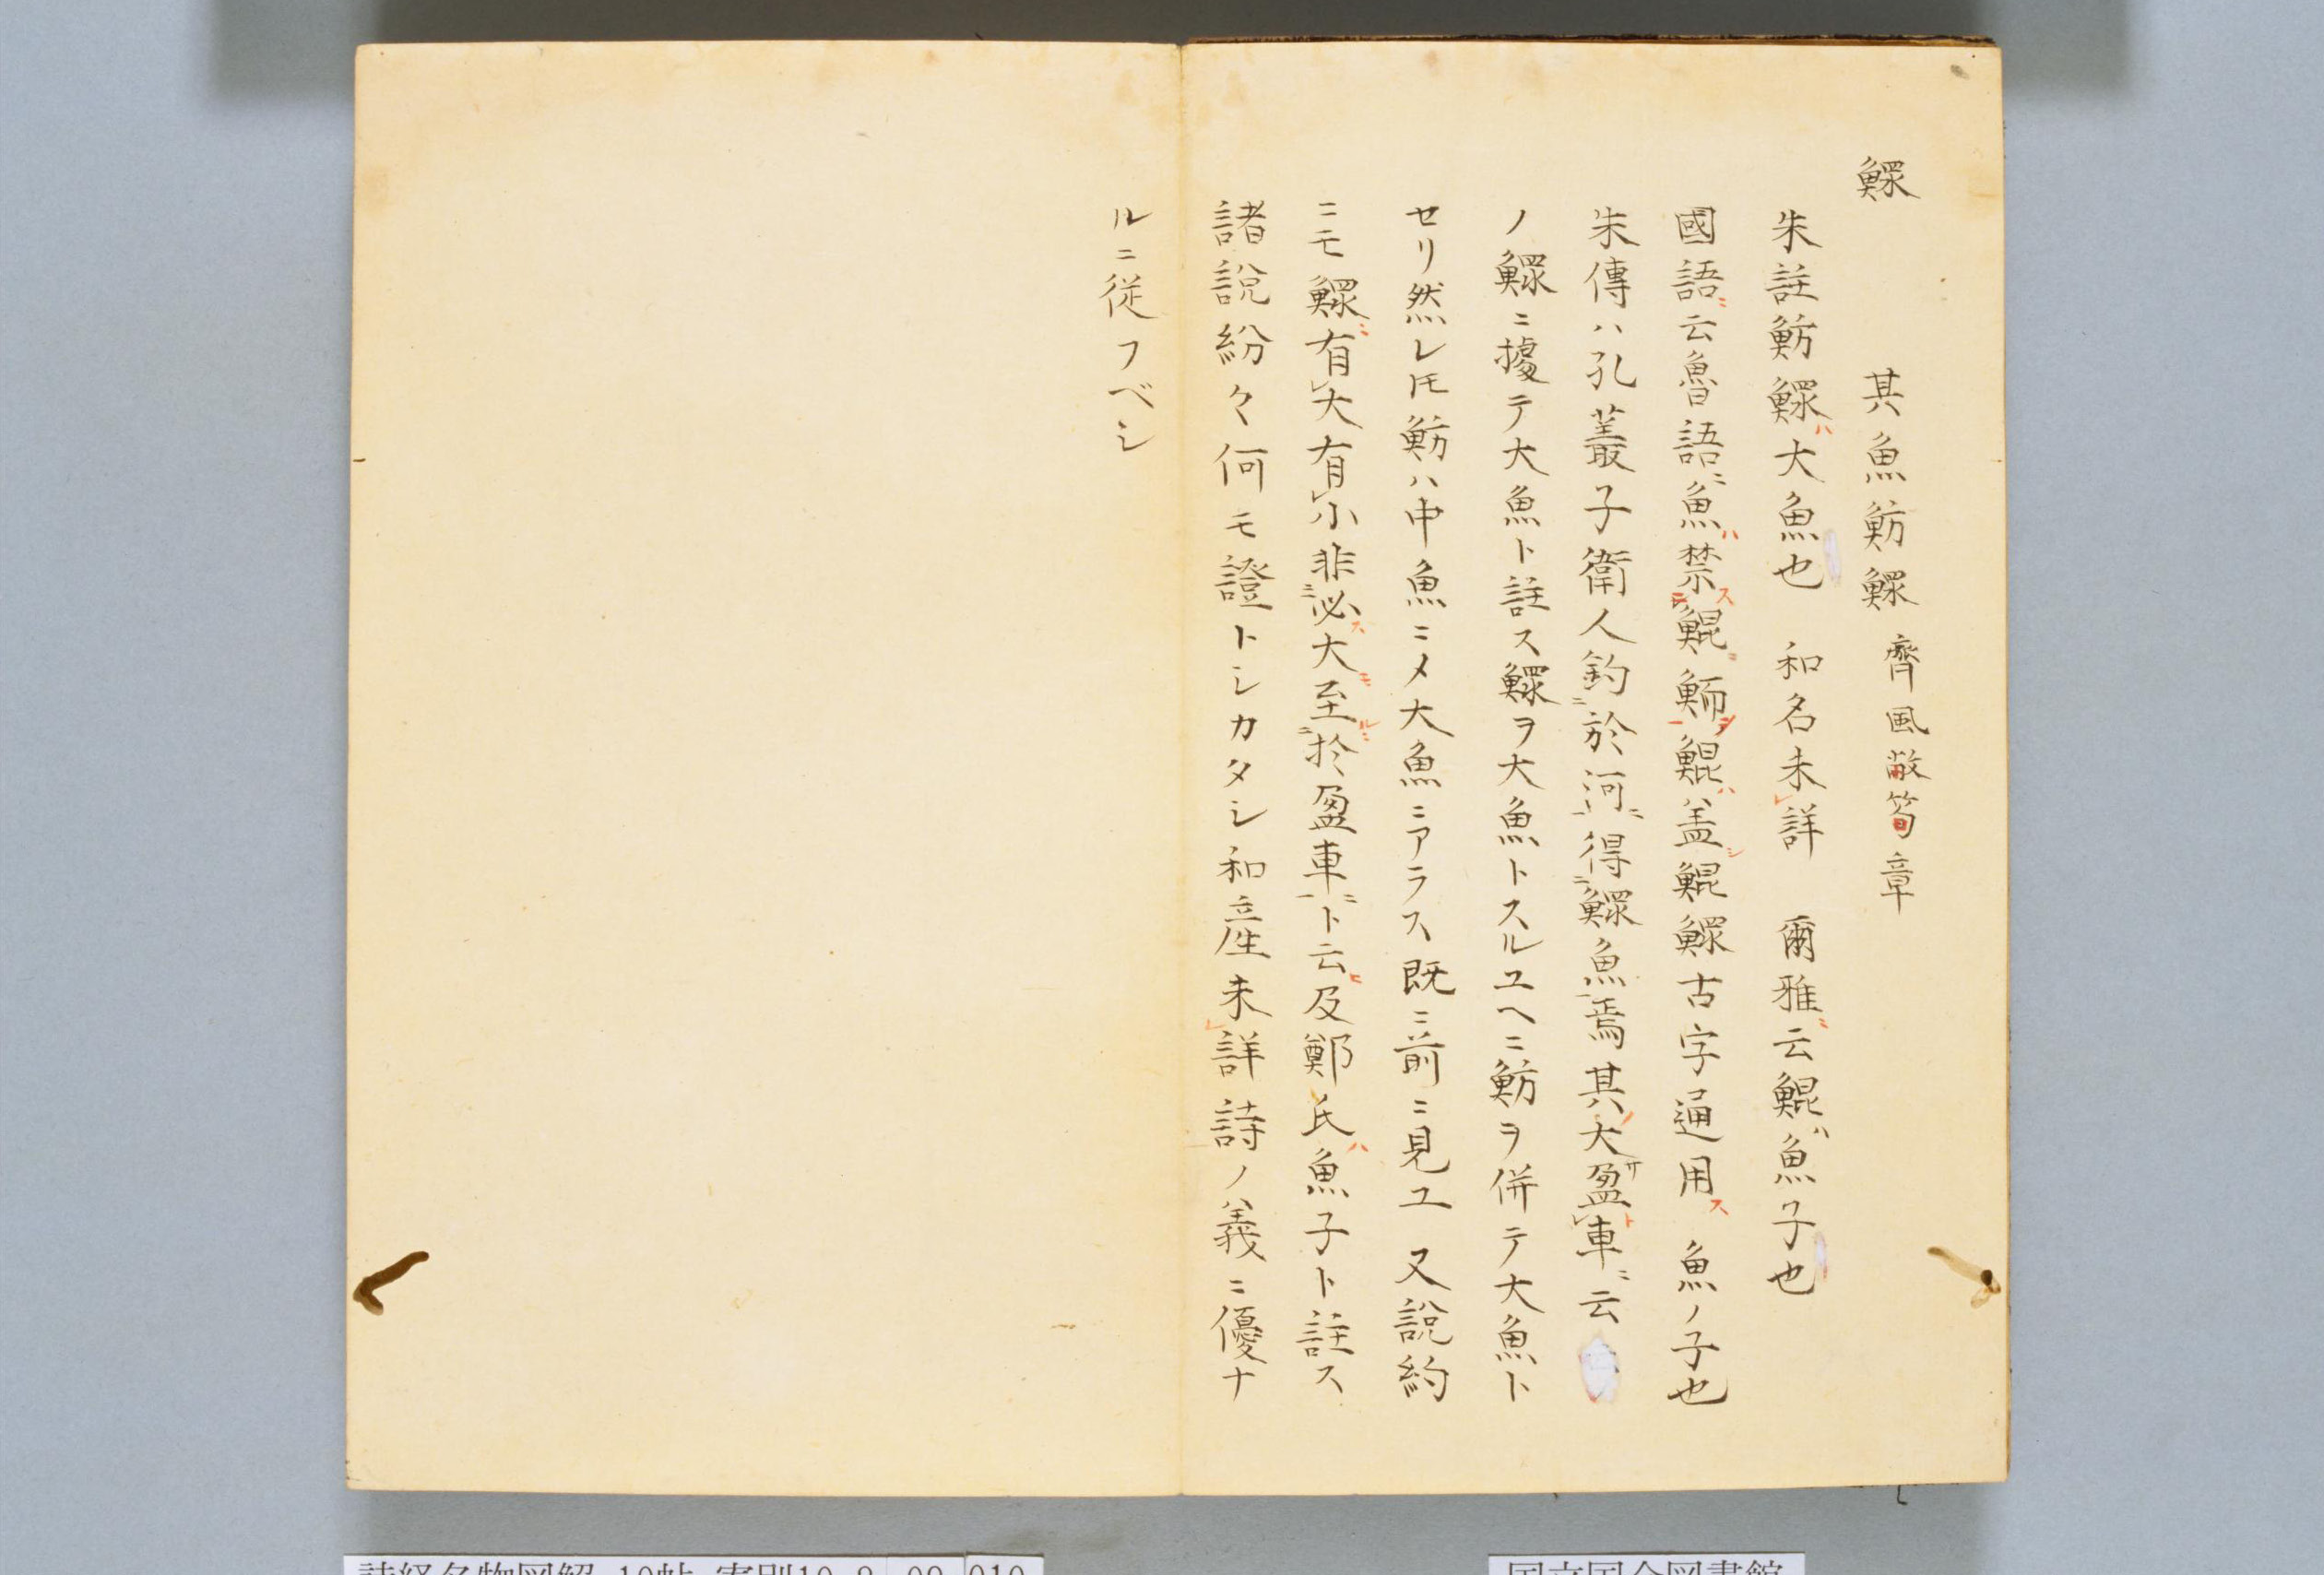 鰥　其魚魴鰥 齊風敝笱章
朱註魴鰥ハ大魚也　和名未レ詳　爾雅ニ云鯤ハ魚子也
國語ニ云魯語ニ魚ハ禁スニ鯤鮞ヲ一鯤ハ盖シ鯤鰥古字通用ス　魚ノ子也
朱傳ハ孔叢子衛人釣ニ於河ニ一得ニ鰥魚一焉其ノ大サ盈レ車ニト云
ノ鰥ニ據テ大魚ト註ス鰥ヲ大魚トスルユヘニ魴ヲ併テ大魚ト
セリ然レ𪜈魴ハ中魚ニメ大魚ニアラス既ニ前ニ見ユ　又說約
ニモ鰥ニ有レ大有レ小非ニ必スモ大至ルニ於盈車ニ一ト云ヒ及鄭氏ハ魚子ト註ス
諸說紛々何モ證トシカタシ和産未レ詳詩ノ義ニ優ナ
ルニ従フベシ